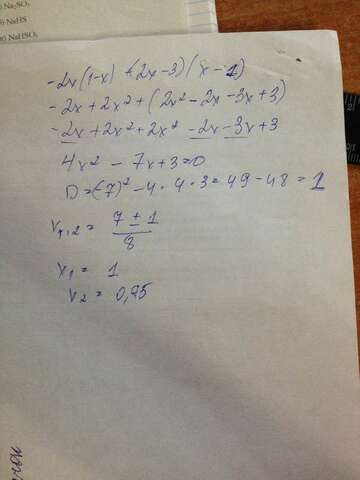 Na₂SO₃
NaHS
NaHSO₃
-2x(1-x)+(2x-3)(x-1)
-2x+2x²+(2x²-2x-3x+3)
-2x+2x²+2x²-2x-3x+3
4x²-7x+3=0
D=(-7)²-4·4·3=49-48=1
x₁,₂= 7±1
8
x₁= 1
x₂= 0,75